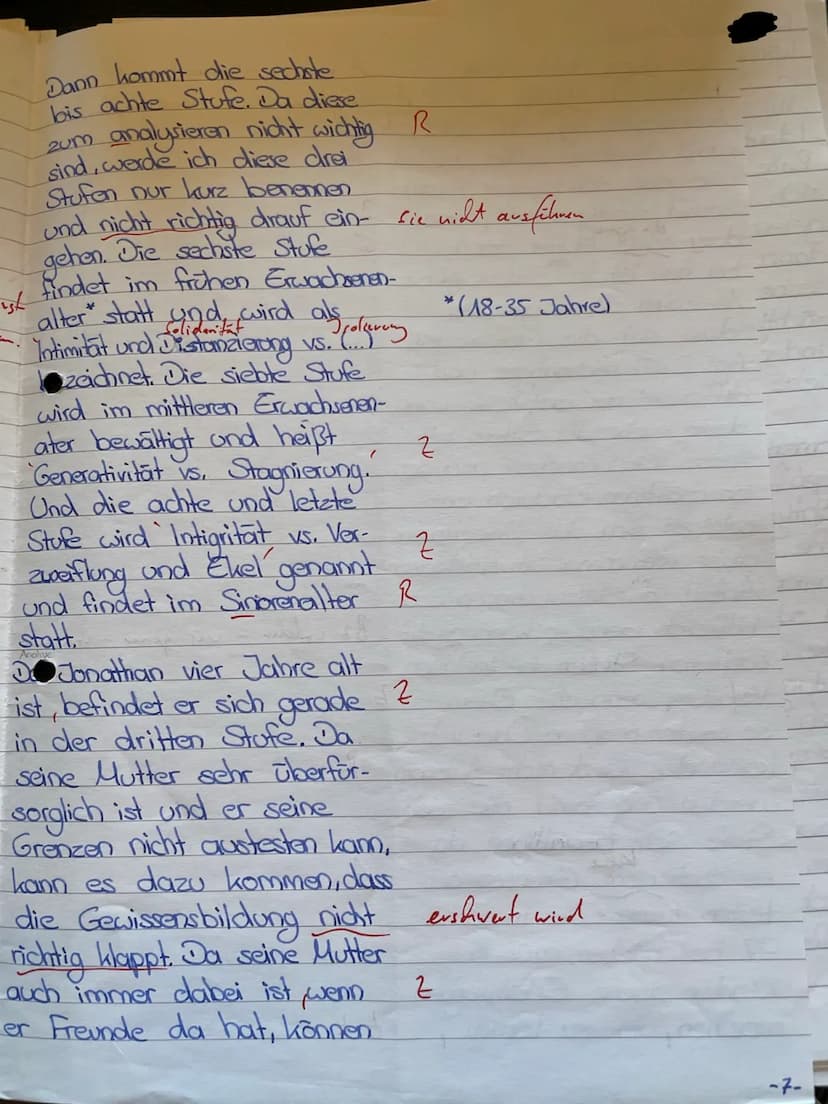 Dann kommt die sechste
bis achte Stufe. Da diese
zum analysieren nicht wichtig R
sind, werde ich diese drei
Stufen nur kurz benennen
und nicht richtig drauf ein- sie nicht ausführen
gehen. Die sechste Stufe
findet im frühen Erwachsenen-
alter* statt und wird als *(18-35 Jahre)
Solidarität Isolierung
'Intimität und Distanzierung vs. (...)'
zeichnet. Die siebte Stufe
wird im mittleren Erwachsenen-
ater bewältigt und heißt Z
'Generativität vs. Stagnierung.'
Und die achte und letzte
Stufe wird 'Intigrität vs. Ver- Z
zweiflung und Ekel' genannt
und findet im Sinorenalter R
statt.
Analyse
Jonathan vier Jahre alt
ist, befindet er sich gerade Z
in der dritten Stufe. Da
seine Mutter sehr überfür-
sorglich ist und er seine
Grenzen nicht austesten kann,
kann es dazu kommen, dass
die Gewissensbildung nicht erschwert wird
richtig klappt. Da seine Mutter
auch immer dabei ist, wenn Z
er Freunde da hat, können
-7-